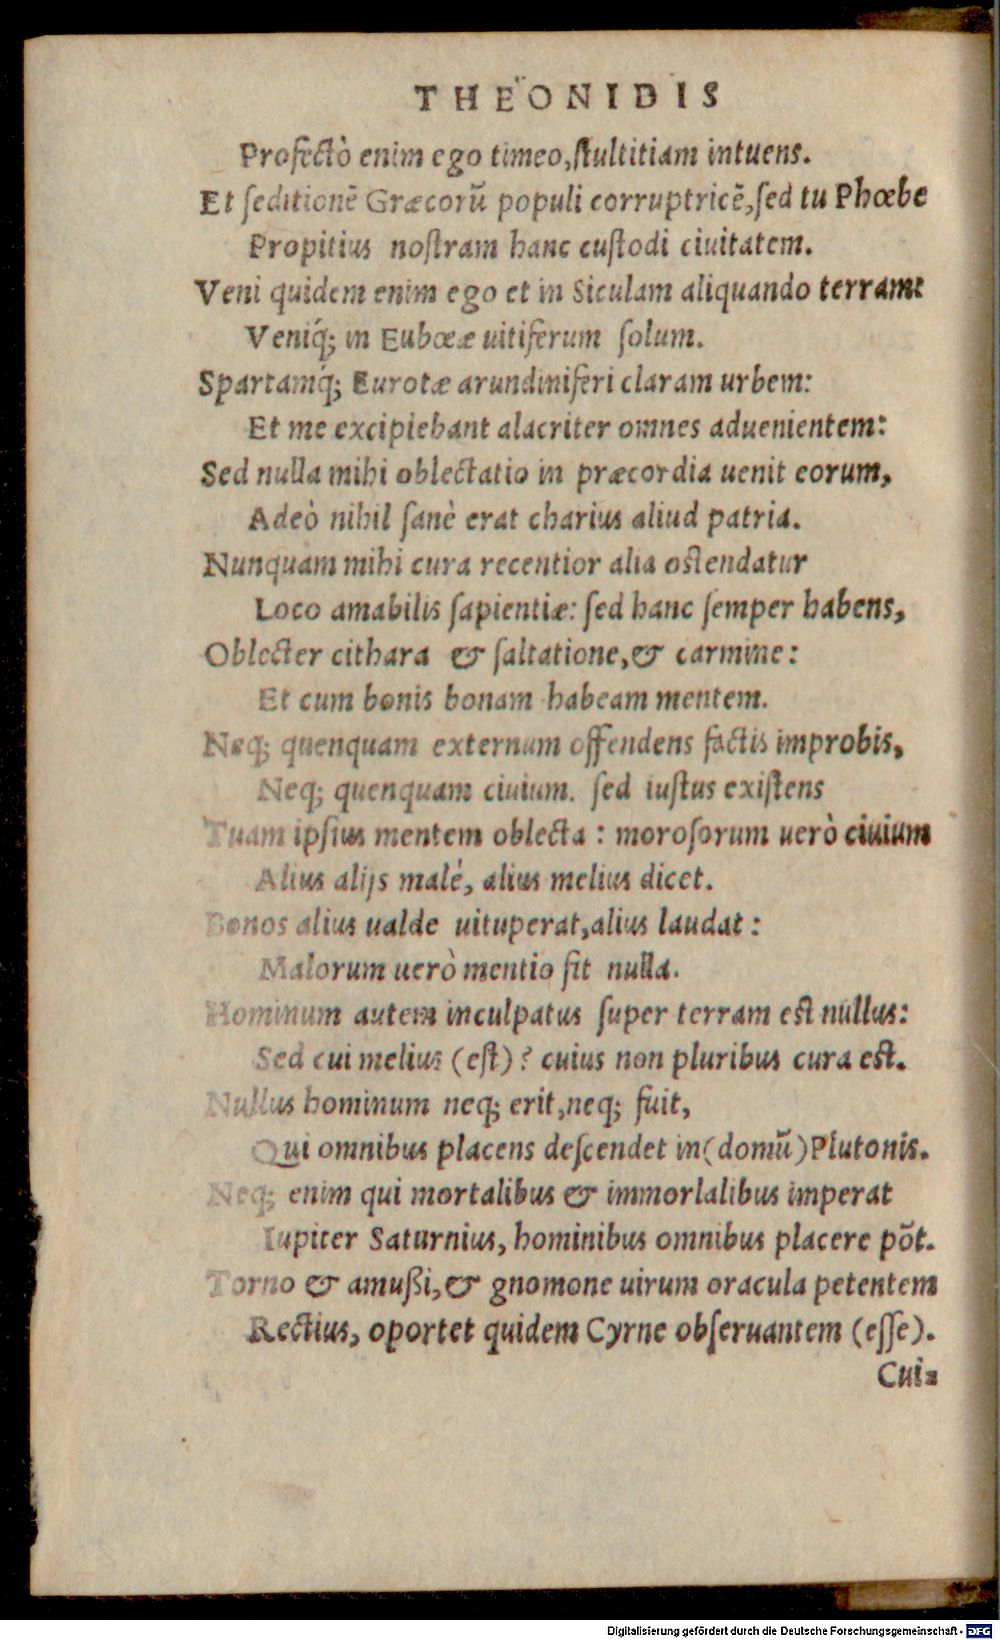 THEONIDIS
Profectò enim ego timeo,ſtultitiam intuens.
Et ſeditionē Græcorū populi corruptricē,ſed tu Phœbe
Propitius noſtram hanc cuſtodi ciuitatem.
Veni quidem enim ego et in Siculam aliquando terram:
Veniq́; in Eubœæ uitiferum ſolum.
Spartamq́; Eurotæ arundiniferi claram urbem:
Et me excipiebant alacriter omnes aduenientem:
Sed nulla mihi oblectatio in præcordia uenit eorum,
Adeò nihil ſanè erat charius aliud patria.
Nunquam mihi cura recentior alia oſtendatur
Loco amabilis ſapientiæ: ſed hanc ſemper habens,
Oblecter cithara & ſaltatione,& carmine:
Et cum bonis bonam habeam mentem.
Neq; quenquam externum offendens factis improbis,
Neq; quenquam ciuium. ſed iuſtus exiſtens
Tuam ipſius mentem oblecta : moroſorum uerò ciuium
Alius alijs malé, alius melius dicet.
Bonos alius ualde uituperat,alius laudat :
Malorum uerò mentio fit nulla.
Hominum autem inculpatus ſuper terram eſt nullus:
Sed cui melius (eſt)? cuius non pluribus cura eſt.
Nullus hominum neq; erit,neq; fuit,
Qui omnibus placens deſcendet in(domū)Plutonis.
Neq; enim qui mortalibus & immorlalibus imperat
Iupiter Saturnius, hominibus omnibus placere põt.
Torno & amußi,& gnomone uirum oracula petentem
Rectius, oportet quidem Cyrne obſeruantem (eſſe).
Cui-
Digitalisierung gefördert durch die Deutsche Forschungsgemeinschaft - DFG